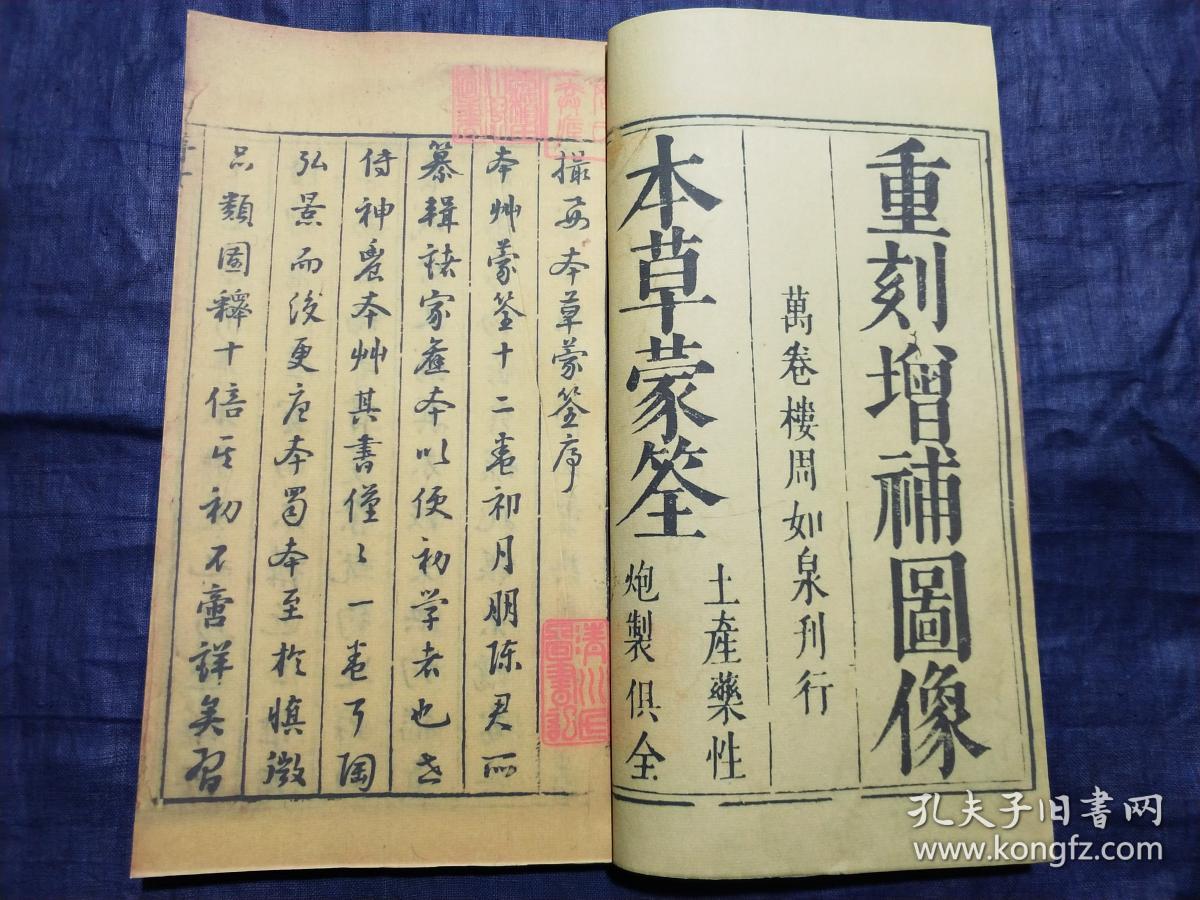 重刻增補圖像
萬卷樓周如泉刊行
本草蒙筌
土產藥性
炮製俱全
撮要本草蒙筌序
本艸蒙筌十二卷祁月朋陳君所
纂輯諸家舊本以便初學者也世
傳神農本艸其書僅〻一卷
陶
弘景而後更唐本蜀本至於慎微
品類圖釋十倍其初不啻詳矣習
孔夫子旧书网
www.kongfz.com